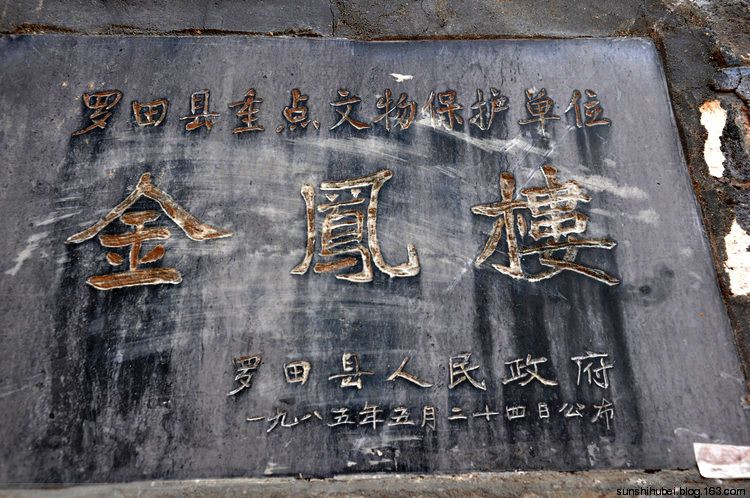 罗田县重点文物保护单位
金鳳樓
罗田县人民政府
一九八五年五月二十四日公布
sunshihubei.blog.163.com